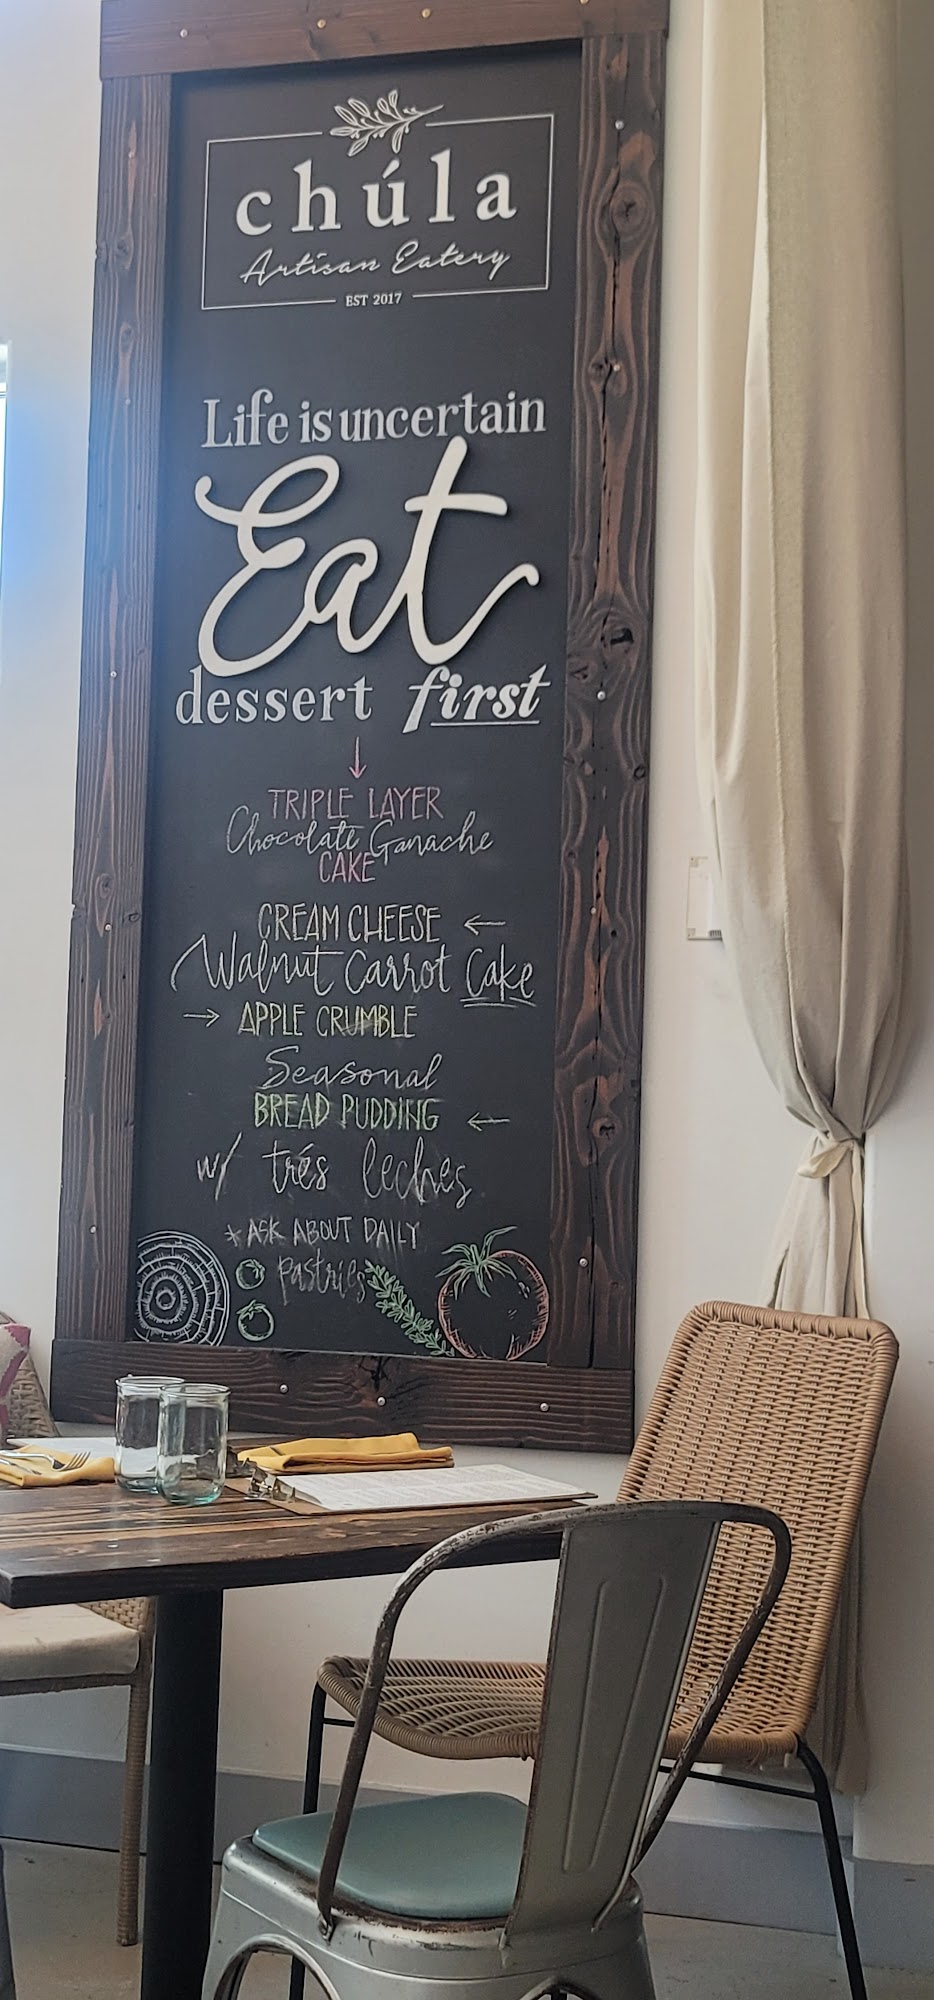 chúla
Artisan Eatery
EST 2017
Life is uncertain
Eat
dessert first
TRIPLE LAYER
Chocolate Ganache
CAKE
CREAM CHEESE
Walnut Carrot Cake
APPLE CRUMBLE
Seasonal
BREAD PUDDING
w/ trés leches
*ASK ABOUT DAILY
pastries